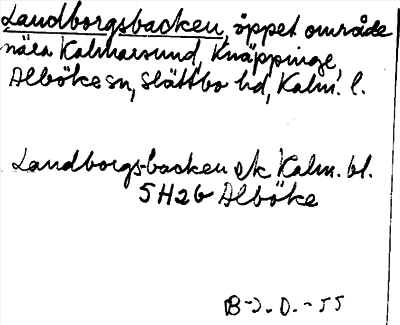 Landborgsbacken, öppet område
nära Kalmarsund, Knäppinge,
Alböke sn, Slättbo hd, Kalm. l.
Landborgsbacken ek Kalm. bl.
5H2b Alböke
B-J. D. -55